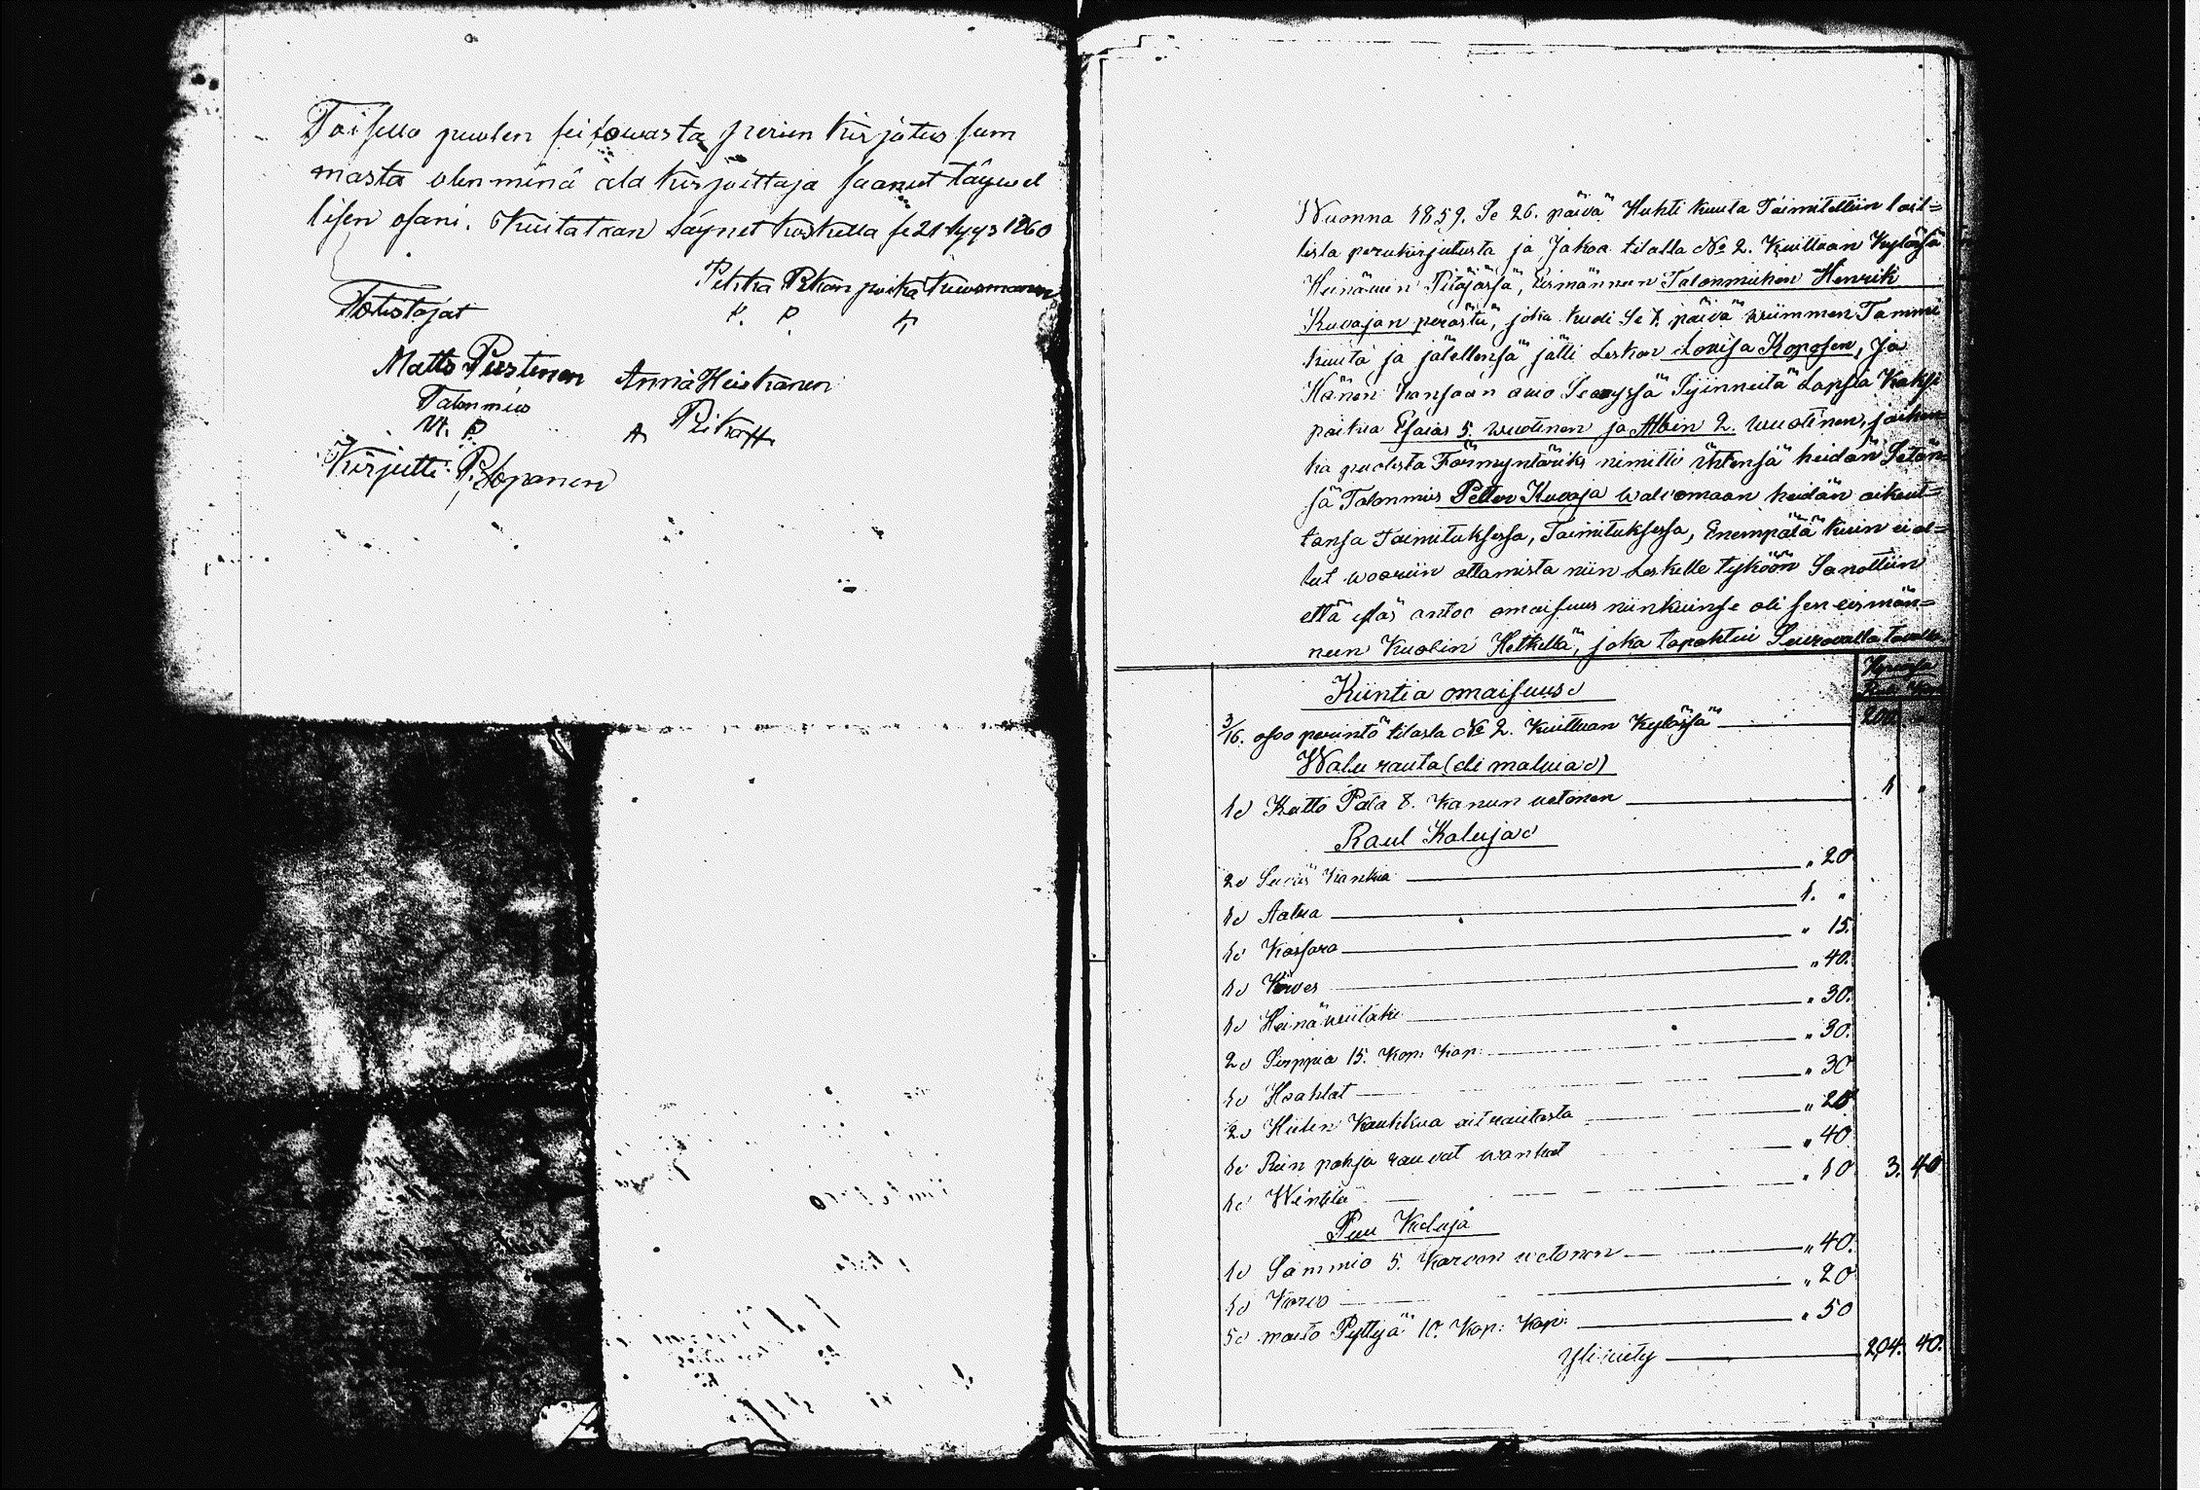 Toisella puolen seisowasta perun kirjotus sum
masta olen minä ala kirjoittaja saanut täydel
lisen osani. Kuitataan Säynet koskella se 21 Syys 1860
Pekka Pekan poika Kuosmanen
P. P. K
Totistajat
Matts Piestinen Anna Heiskanen
Talonmies
M. P. A Piika H.
Kirjutti P. Loponen
Wuonna 1859. Se 26. päivä Huhti kuuta Toimitettiin lail=
lista perukirjutusta ja Jakoa tilalla No 2. Kuittuan Kylässä
Heinäween Pitäjässä, Eismännen Talonmiehen Henrik
Kuvajan perästä, joka kuoli Se 7. päivä wiimmen Tammi
kuuta ja jälellensä jätti Leskon Lovisa Koposen, Ja
Hänen kansaan awio Seassä Sijinneitä Lapsia Kaksi
poikaa Esaias 5. wuotinen ja Albin 2. wuotinen, joiken
ka puolesta Förmyntäriks nimitti Ühtensä heidän Setän=
sä Talonmies Petter Kuvaja walvomaan heidän oikeut=
tansa Toimituksessa, Toimituksessa, Enempätä kuin ei ol=
lut waariin ottamista niin Leskelle tyköön Sanottiin
että ylös antaa omaisuus niinkuin se oli sen eismän=
neen Kuolin Hetkellä, joka tapahtui Seuraavalla tavalla.
Kiintiä omaisuus
3/16. osoo perintö tilasta No 2. Kuittuan Kylässä 200
Walu rauta (eli malmia)
1 Katto Pata 8. Kanun vetonen 1 "
Raut Kaluja
2 Kankia " 20
1 Aatra 1. "
1 Kassara " 15.
1 Kirves " 40.
1 Heinä wiitake " 30.
2 Sirppiä 15. Kop: Kap. " 30.
1 Haahlat " 30
2 Hiilen Kaukkua rautasta " 20
1 Rein pohja rauvat wanhat " 40
1 Winkla " 10 3. 40
Puu Kaluja
1 Sammio 5. Karvan vetonen " 40.
1 Korvo " 20
5 maito Pyttyä 10. Kop: Kap: " 50
Yli viety 204. 40.